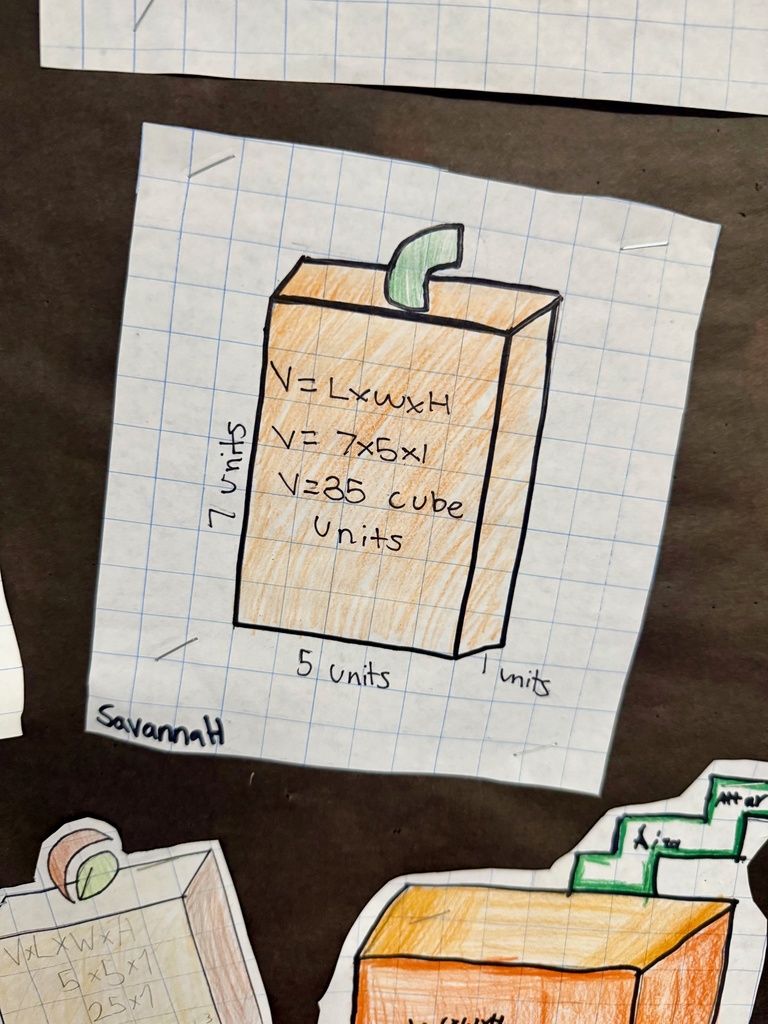 V=LxWxH
V= 7x5x1
V=35 cube
units
7 units
5 units
1 units
SavannaH
Attar
Aiza
VxLxWxH
5x5x1
25x1